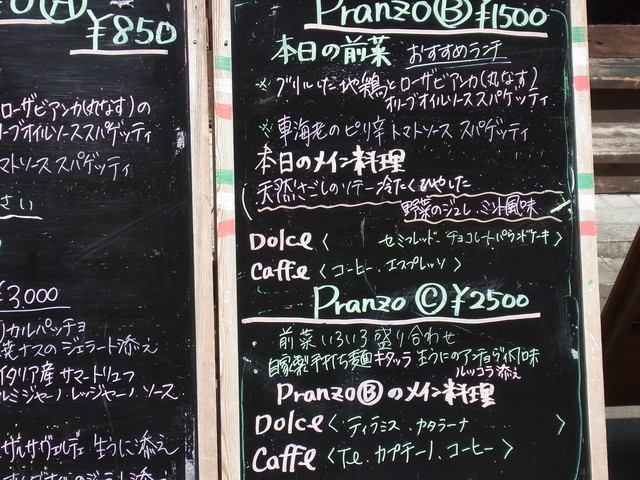 Ⓐ
¥850
ローザビアンカ(丸なす)の
オイルソーススパゲッティ
トマトソース スパゲッティ
さい
¥3,000
カルパッチョ
ナスのジェラート添え
イタリア産 サマートリュフ
レッジャーノ ソース
生うに添え
Pranzo Ⓑ ¥1500
本日の前菜 おすすめランチ
※グリルした地鶏とローザビアンカ(丸なす)
オリーブオイルソーススパゲッティ
※車海老のピリ辛トマトソース スパゲッティ
本日のメイン料理
天然さごしのソテー冷たくひやした
野菜のジュレ、ミント風味
Dolce < セミフレッド、チョコレートパウンドケーキ >
Caffe < コーヒー、エスプレッソ >
Pranzo Ⓒ ¥2500
前菜いろいろ盛り合わせ
自家製手打ち麺キタッラ 生うにのアンチョヴィ風味
ルッコラ添え
Pranzo Ⓑ のメイン料理
Dolce < ティラミス、カタラーナ >
Caffe < Te、カプチーノ、コーヒー >